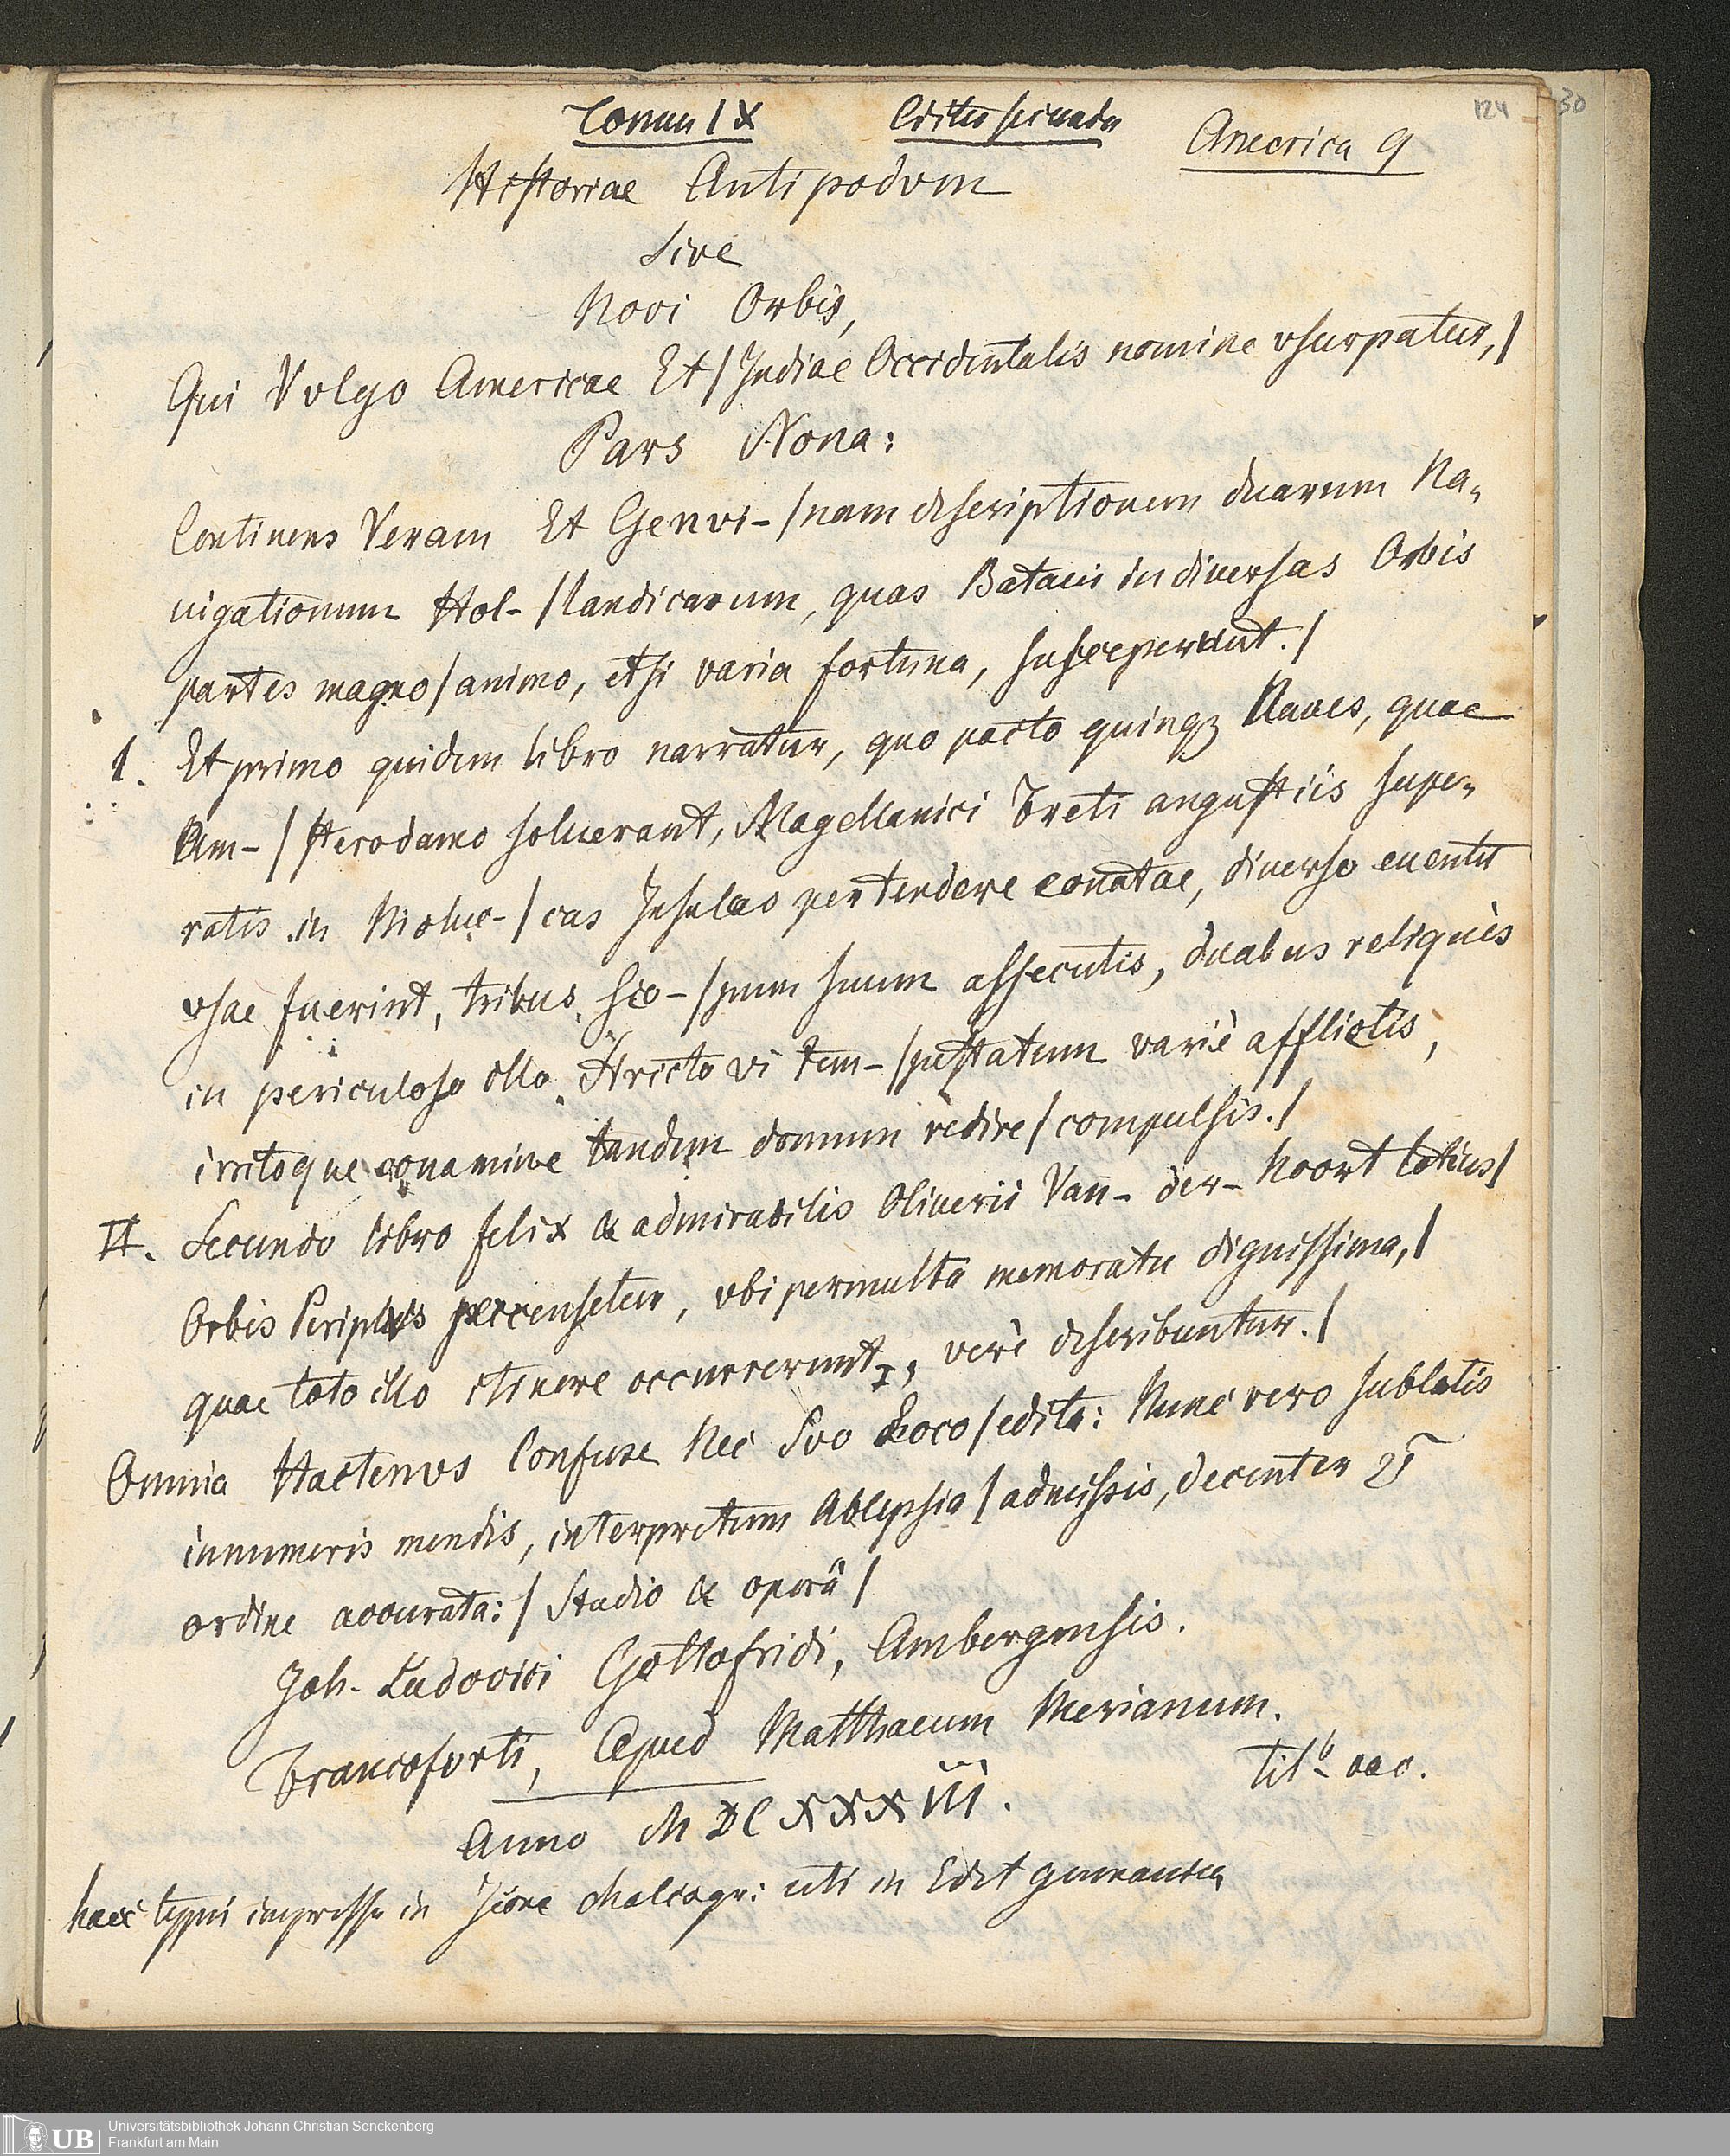 Tomus IX Editio secunda America 9 124 30
Historiae Antipodvm
Sive
Novi Orbis,
Qui Vvlgo Americae Et / Indiae Occidentalis nomine vsurpatur, /
Pars Nona:
Continens Veram Et Genvi- / nam descriptionem duarum Na-
uigationum Hol- / landicarum, quas Bataui in diuersas Orbis
partes magno / animo, etsi varia fortuna, susceperunt. /
I. Et primo quidem libro narratur, quo pacto quinq3 Naues, quae
Am- / sterodamo soluerant, Magellanici Freti angustiis supe-
ratis in Moluc- / cas Insulas pertendere conatae, diuerso euentu
vsae fuerint, tribus sco- / pum suum assecutis, duabus reliquis
in periculoso illo stricto vi tem- / pestatum variè afflictis,
irritoque conamine tandem domum redire / compulsis. /
II. Secundo libro felix & admirabilis Oliuerii Van- der- Noort totius /
Orbis Periplus percensetur, vbi permulta memoratu dignissima, /
quae toto illo itinere occurrerunt, verè describuntur. /
Omnia Hactenvs Confuse Nec Svo Loco / edita: Nunc vero sublatis
innumeris mendis, interpretum Ablepsia / admissis, decenter &
ordine accurata: / Studio & operâ /
Joh. Ludovici Gottofridi, Ambergensis.
Francofvrti, Apud Matthaeum Merianum.
Titb vac.
Anno M DC XXXIII.
haec typis impressa in Icone chalcogr: uti in Edit germanica